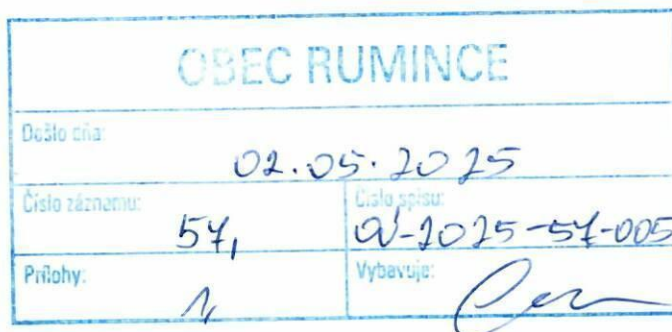 OBEC RUMINCE
Došlo dňa:
02.05.2025
Číslo záznamu:
57,
Číslo spisu:
OÚ-2025-57-005
Prílohy:
1,
Vybavuje: